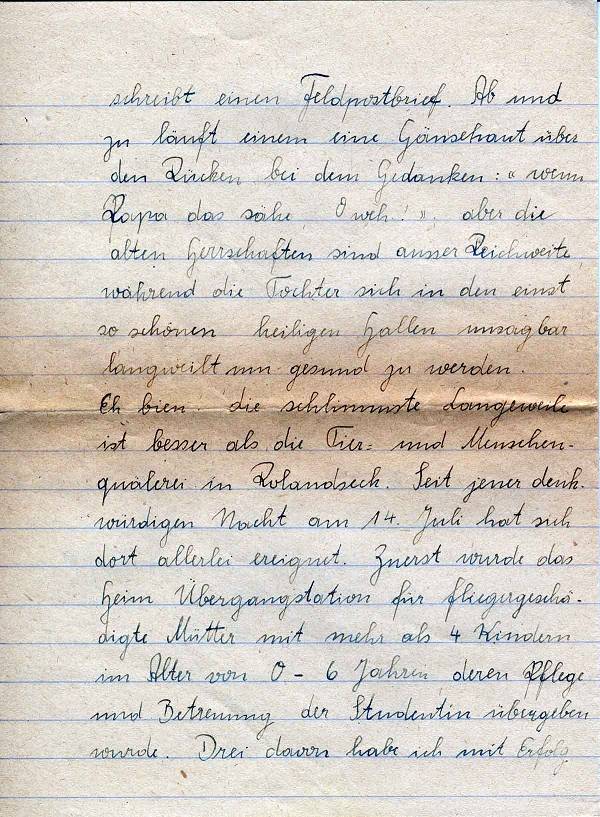 schreibt einen Feldpostbrief. Ab und
zu läuft einem eine Gänsehaut über
den Rücken bei dem Gedanken: "wenn
Papa das sähe, O weh!", aber die
alten Herrschaften sind ausser Reichweite,
während die Tochter sich in den einst
so schönen heiligen Hallen unsagbar
langweilt um gesund zu werden.
Eh bien die schlimmste Langeweile
ist besser als die Tier= und Menschen-
quälerei in Rolandseck. Seit jener denk-
würdigen Nacht am 14. Juli hat sich
dort allerlei ereignet. Zuerst wurde das
Heim Übergangstation für fliegergeschä-
digte Mütter mit mehr als 4 Kindern
im Alter von 0 - 6 Jahren, deren Pflege
und Betreuung der Studentin übergeben
wurde. Drei davon habe ich mit Erfolg